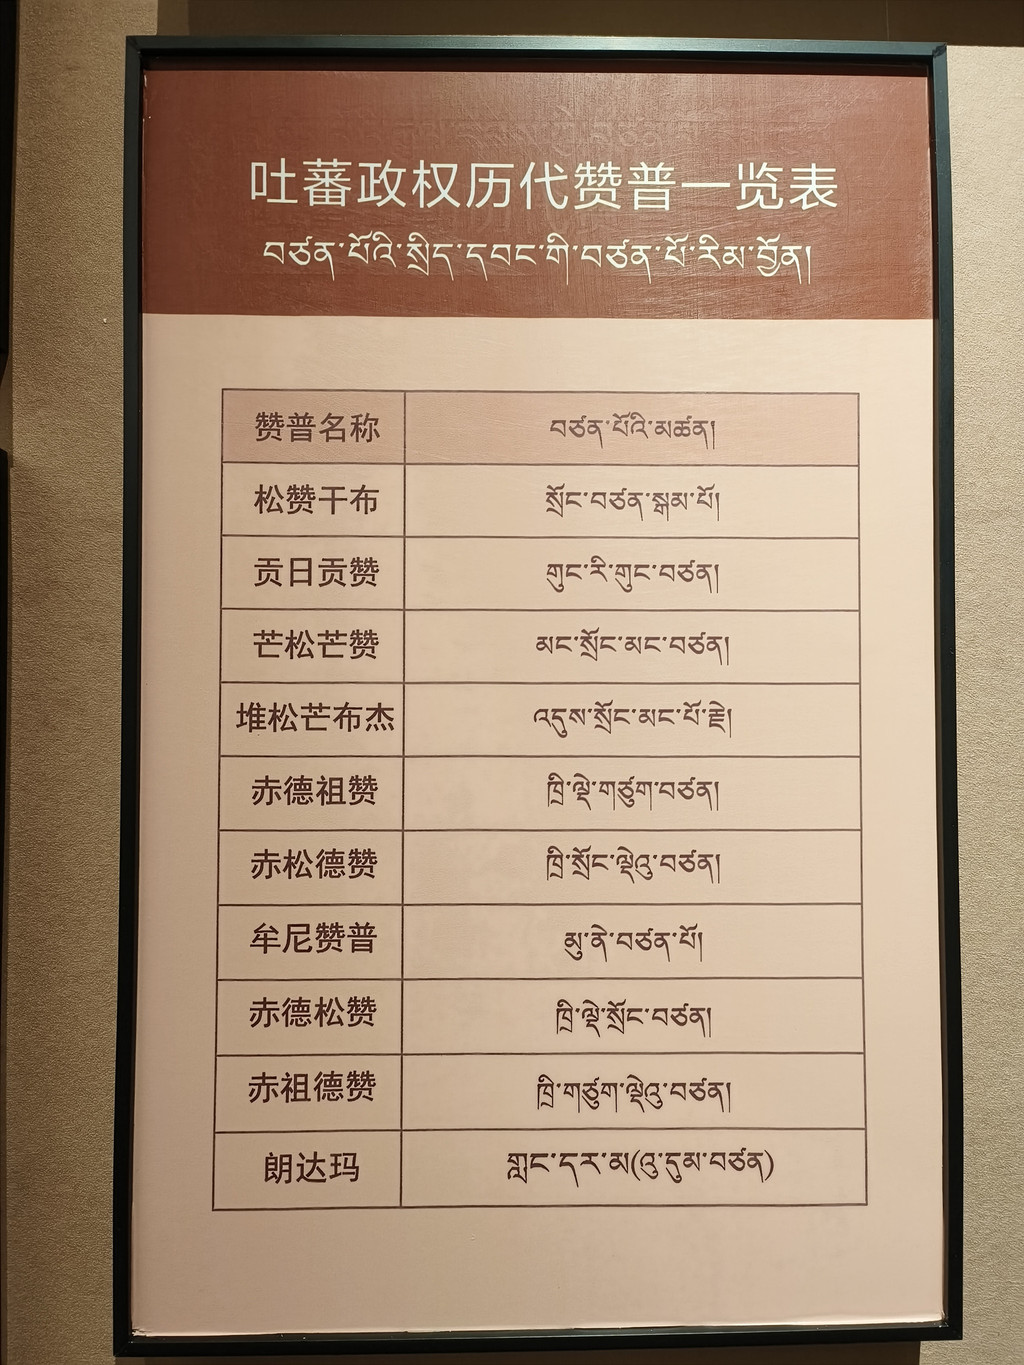 吐蕃政权历代赞普一览表
བཙན་པོའི་སྲིད་དབང་གི་བཙན་པོ་རིམ་བྱོན།
赞普名称 བཙན་པོའི་མཚན།
松赞干布 སྲོང་བཙན་སྒམ་པོ།
贡日贡赞 གུང་རི་གུང་བཙན།
芒松芒赞 མང་སྲོང་མང་བཙན།
堆松芒布杰 འདུས་སྲོང་མང་པོ་རྗེ།
赤德祖赞 ཁྲི་ལྡེ་གཙུག་བཙན།
赤松德赞 ཁྲི་སྲོང་ལྡེའུ་བཙན།
牟尼赞普 མུ་ནེ་བཙན་པོ།
赤德松赞 ཁྲི་ལྡེ་སྲོང་བཙན།
赤祖德赞 ཁྲི་གཙུག་ལྡེའུ་བཙན།
朗达玛 གླང་དར་མ(འུ་དུམ་བཙན)